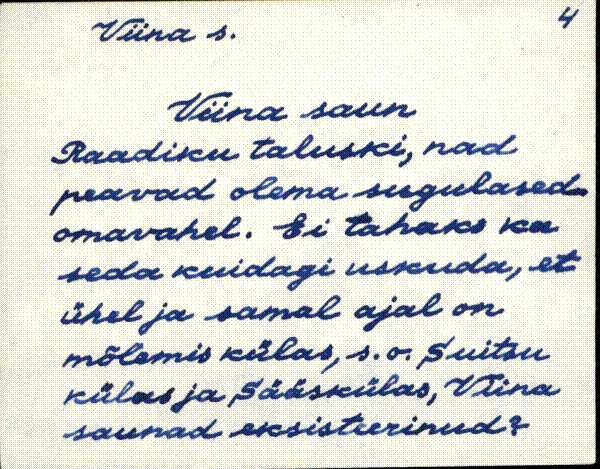 Viina s.
4
Viina saun
Raadiku taluski, nad
peavad olema sugulased
omavahel. Ei tahaks ka
seda kuidagi uskuda, et
ühel ja samal ajal on
mõlemis külas, s.o. Suitsu
külas ja Sääskülas, Viina
saunad eksisteerinud?